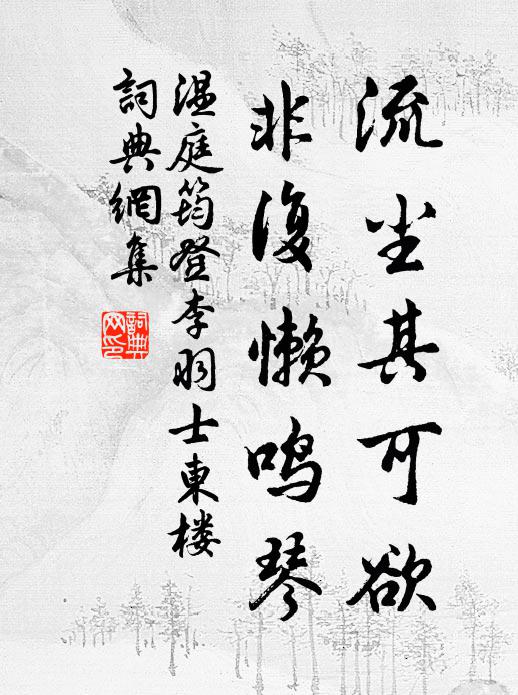 流尘其可欲
非复懒鸣琴
温庭筠登李羽士東楼
詞典網集
詞典網印